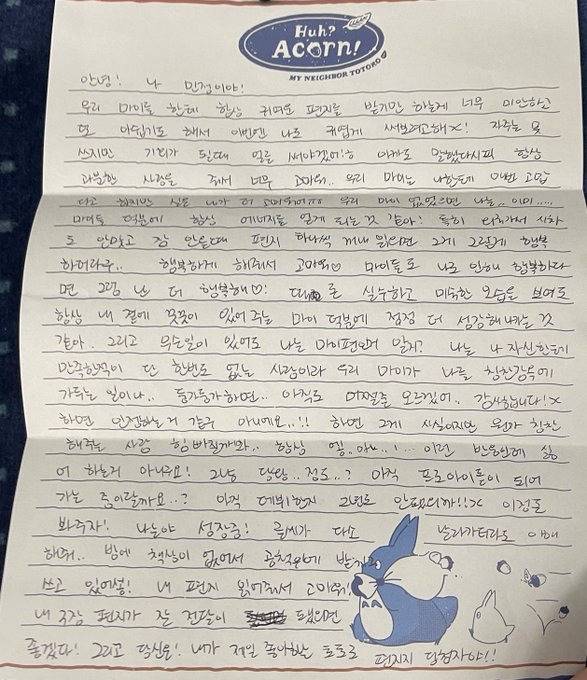 Huh?
CLEAN
Acorn!
MY NEIGHBOR TOTORO
안녕! 나 민정이야!
우리 마이들 한테 항상 귀여운 편지를 받기만 하는게 너무 미안하고
또 아쉽기도 해서 이번엔 나도 귀엽게 써보려고해x! 자주는 못
쓰지만 기회가 될때 얼른 써야겠어!ㅎ 아까도 말했다시피 항상
과분한 사랑을 줘서 너무 고마워.. 우리 마이는 나한테 이번 고맙
다고 하지만 실은 내가 더 고마워어ㅠㅠ 우리 마이 없었으면 나는.. 이미.....
마이들 덕분에 항상 에너지를 얻게 되는것 같아! 특히 해외가서 시차
도 안맞고 잠 안올때 편지 하나씩 꺼내 읽으면 그게 그렇게 행복
하더라구.. 행복하게 해줘서 고마워♡ 마이들도 나로 인해 행복하다
면 그럼 난 더 행복해♡! 때론 실수하고 미숙한 모습을 보여도
항상 내 곁에 꿋꿋이 있어 주는 마이 덕분에 점점 더 성장해나가는 것
같아. 그리고 무슨일이 있어도 나는 마이편인거 알지? 나는 나 자신한테
만족한적이 단 한번도 없는 사람이라 우리 마이가 나를 칭찬감옥에
가두는 일이나.. 둥가둥가하면.. 아직도 어쩔줄 모르겠어.. 감사합니다!x
하면 인정하는거 같구 아니에요..!! 하면 그게 사실이지만 뭔가 칭찬
해주는 사람 힘빠질까봐.. 항상 엥..아뇨..!... 이런 반응인데 싫
어 하는게 아니구요! 그냥 당황..정도..? 아직 프로아이돌이 되어
가는 중이랄까요..? 아직 데뷔한지 2년도 안됐으니까!!x 이정도
봐주자! 나는야 성장중! 글씨가 다소 날라가더라도 이해
해줘.. 밤에 책상이 없어서 공책위에 받쳐
쓰고 있어성! 내 편지 읽어줘서 고마워!
내 국장 편지가 잘 전달이 됐으면
좋겠다! 그리고 당신은! 내가 제일 좋아하는 토토로 편지지 당첨자야!!